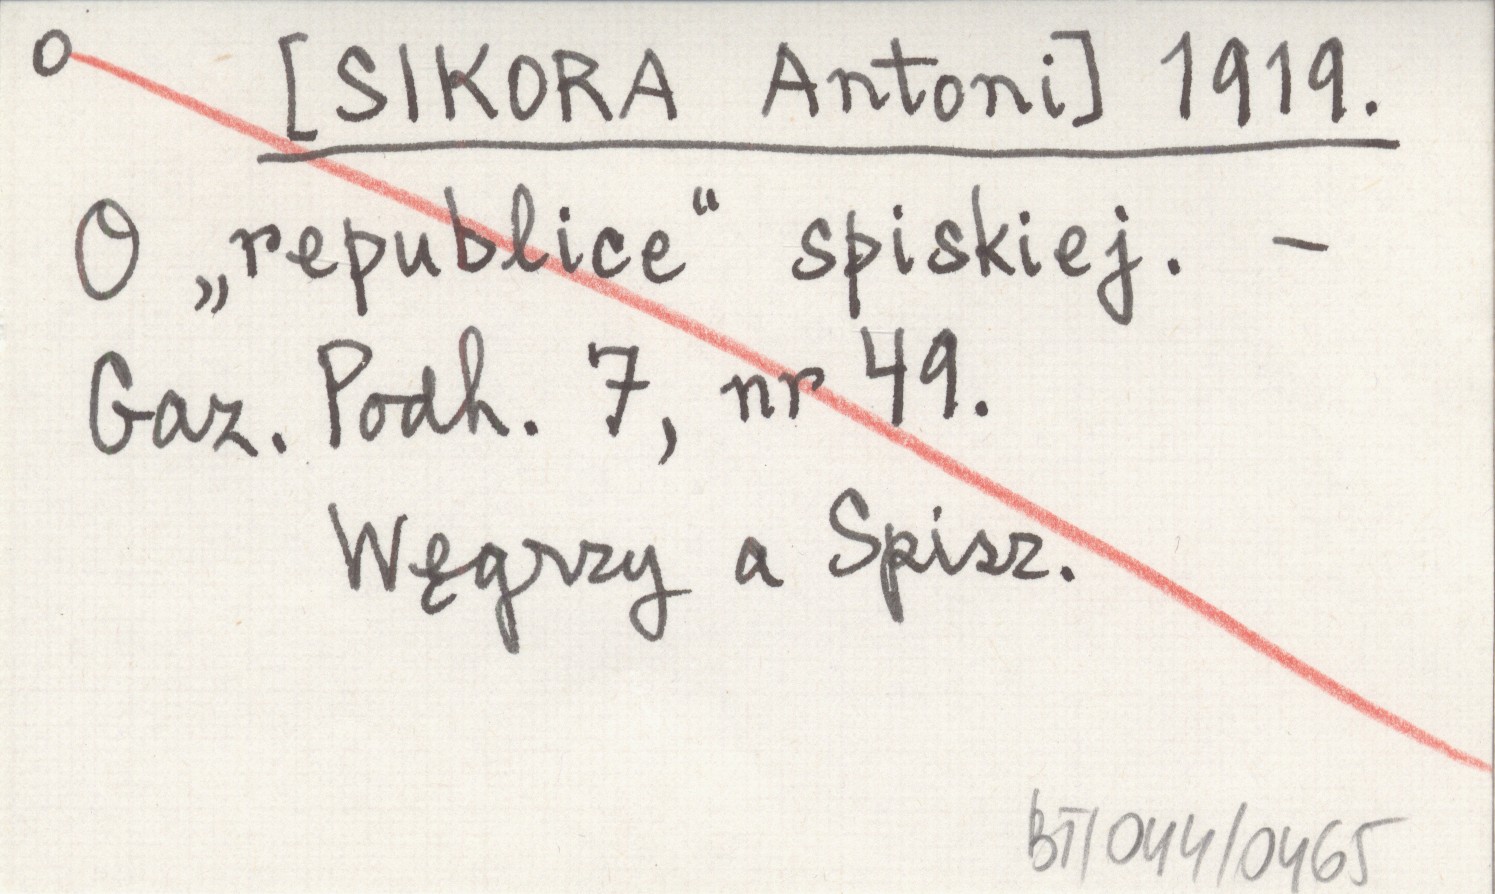 O [SIKORA Antoni] 1919.
O „republice“ spiskiej. –
Gaz. Podh. 7, nr 49.
Węgrzy a Spisz.
BT/044/0465